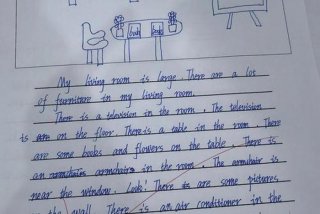 My living room is large. There are a lot
of furniture in my living room.
There is a television in the room. The television
is on the floor. There is a table in the room. There
are some books and flowers on the table. There is
an armchair in the room. The armchair is
near the window. Look! There are some pictures
the wall. There is an air conditioner in the